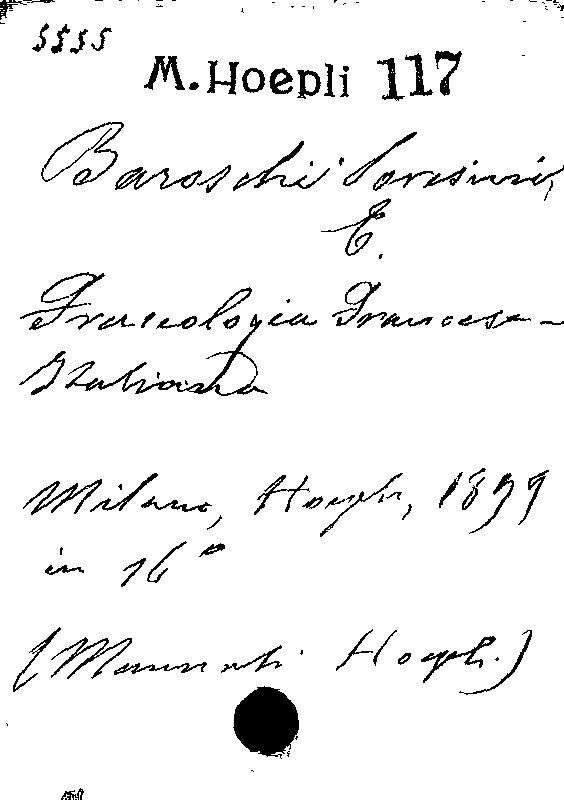 5555
M. Hoepli 117
Baroschi Soresini,
E.
Fraseologia Francese-
Italiana
Milano, Hoepli, 1899
in 16°
(Manuali Hoepli.)